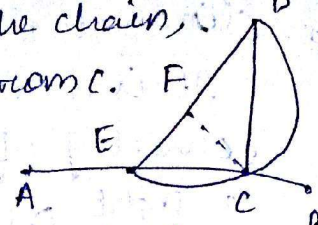 the chain,
from C. F
E
A C